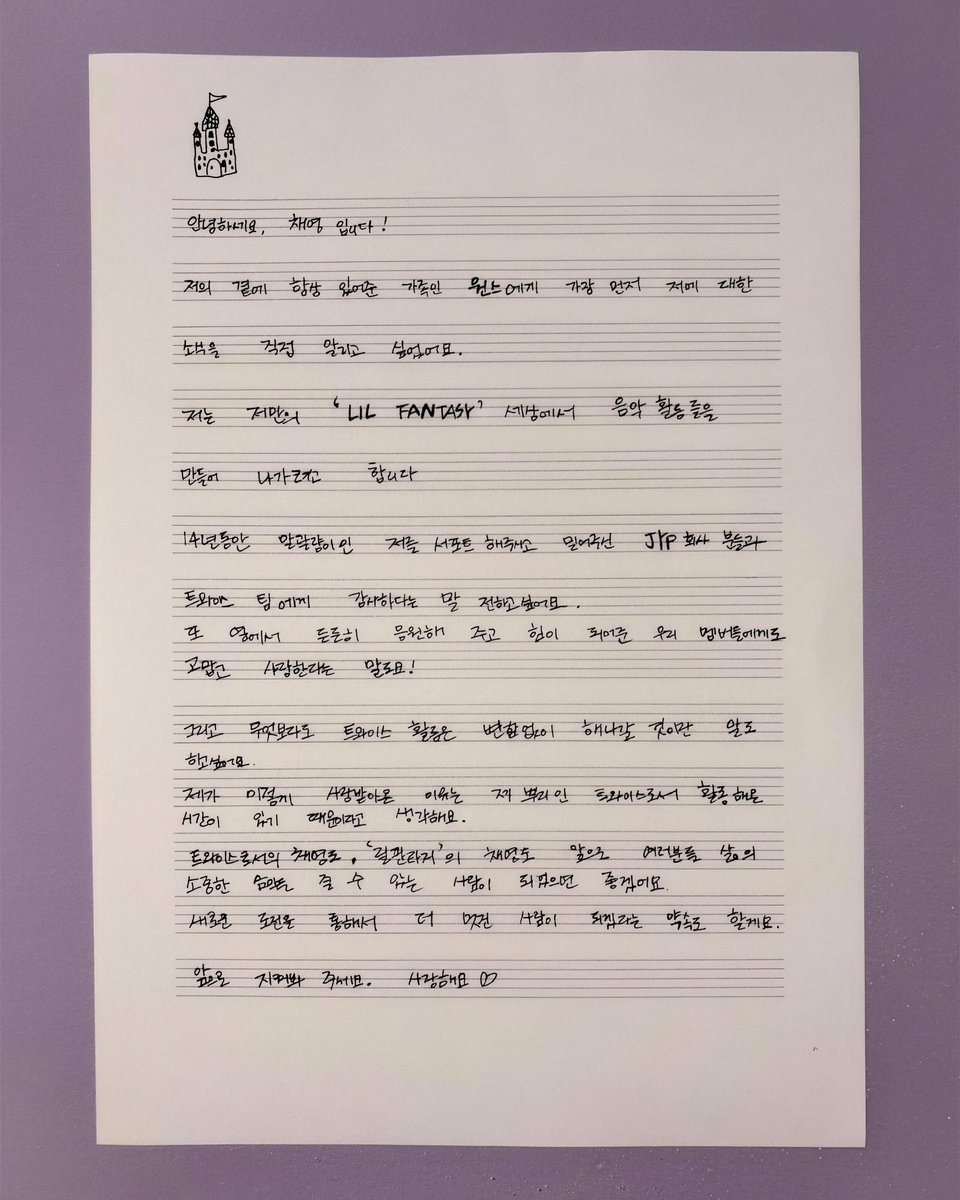 안녕하세요, 채영 입니다!
저의 곁에 항상 있어준 가족인 원스에게 가장 먼저 저에 대한
소식을 직접 알리고 싶었어요.
저는 저만의 'LIL FANTASY' 세상에서 음악 활동들을
만들어 나가려고 합니다
14년동안 말괄량이인 저를 서포트 해주시고 믿어주신 JYP 회사 분들과
트와이스 팀에게 감사하다는 말 전하고싶어요.
또 옆에서 든든히 응원해 주고 힘이 되어준 우리 멤버들에게도
고맙고 사랑한다는 말로요!
그리고 무엇보다도 트와이스 활동은 변함없이 해나갈 것이란 말도
하고싶어요.
제가 이렇게 사랑받아온 이유는 제 뿌리인 트와이스로서 활동해온
시간이 있기 때문이라고 생각해요.
트와이스로서의 채영도, '릴판타지'의 채영도 앞으로 여러분들 삶의
소중한 수 있는 사람이 되었으면 좋겠어요.
새로운 도전을 통해서 더 멋진 사람이 되겠다는 약속도 할게요.
앞으로 지켜봐 주세요. 사랑해요♡